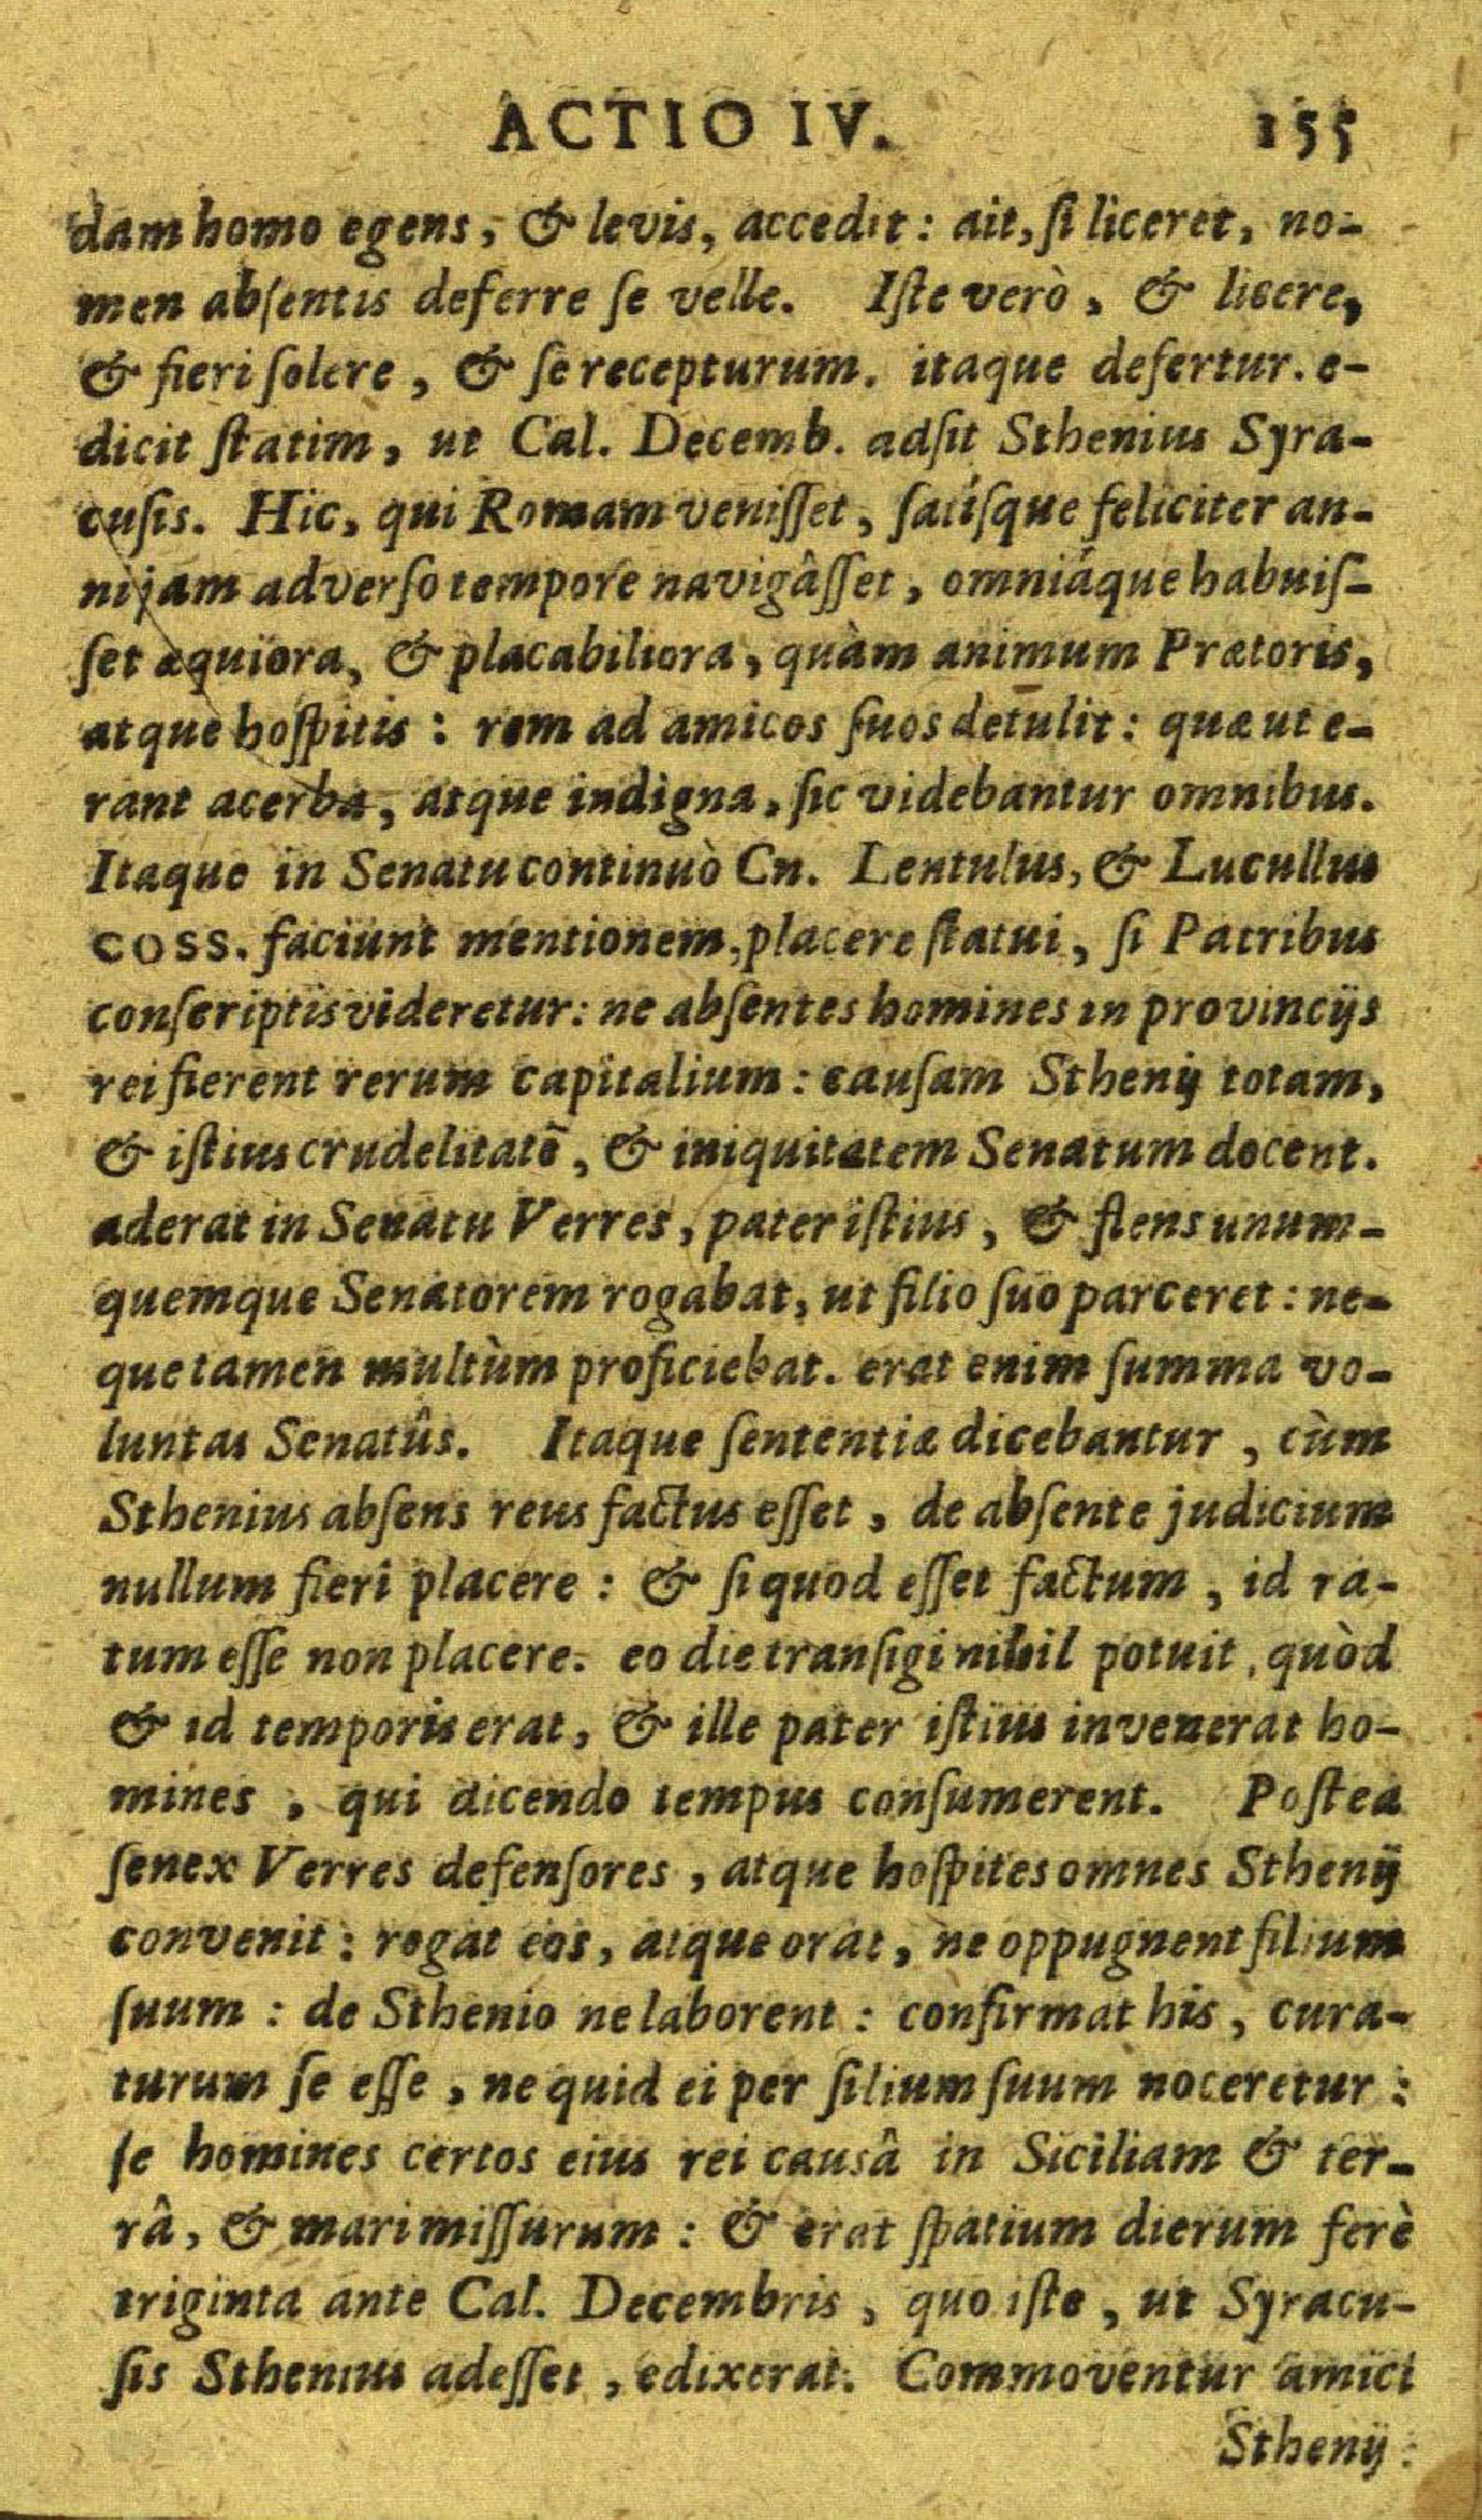 ACTIO IV. 155
dam homo egens, & levis, accedit: ait, ſi liceret, no-
men abſentis deferre ſe velle. Iſte verò, & licere,
& fieri ſolere, & ſe recepturum. itaque defertur. e-
dicit ſtatim, ut Cal. Decemb. adſit Sthenius Syra-
cuſis. Hic, qui Romam veniſſet, ſatíſque feliciter an-
ni jam adverſo tempore navigâſſet, omniáque habuiſ-
ſet æquiora, & placabiliora, quàm animum Prætoris,
atque hoſpitis: rem ad amicos ſuos detulit: quæ ut e-
rant acerba, atque indigna, ſic videbantur omnibus.
Itaque in Senatu continuò Cn. Lentulus, & Lucullus
COSS. faciunt mentionem, placere ſtatui, ſi Patribus
conſcriptis videretur: ne abſentes homines in provincijs
rei fierent rerum capitalium: cauſam Sthenij totam,
& iſtius crudelitatẽ, & iniquitatem Senatum docent.
aderat in Senatu Verres, pater iſtius, & flens unum-
quemque Senatorem rogabat, ut filio ſuo parceret: ne-
que tamen multùm proficiebat. erat enim ſumma vo-
luntas Senatûs. Itaque ſententiæ dicebantur, cùm
Sthenius abſens reus factus eſſet, de abſente judicium
nullum fieri placere: & ſi quod eſſet factum, id ra-
tum eſſe non placere. eo die tranſigi nihil potuit, quòd
& id temporis erat, & ille pater iſtius invenerat ho-
mines, qui dicendo tempus conſumerent. Poſtea
ſenex Verres defenſores, atque hoſpites omnes Sthenij
convenit: rogat eos, atque orat, ne oppugnent filium
ſuum: de Sthenio ne laborent: confirmat his, cura-
turum ſe eſſe, ne quid ei per filium ſuum noceretur:
ſe homines certos eius rei causâ in Siciliam & ter-
râ, & mari miſſurum: & erat ſpatium dierum ferè
triginta ante Cal. Decembris, quo iſte, ut Syracu-
ſis Sthenius adeſſet, edixerat. Commoventur amici
Sthenij: